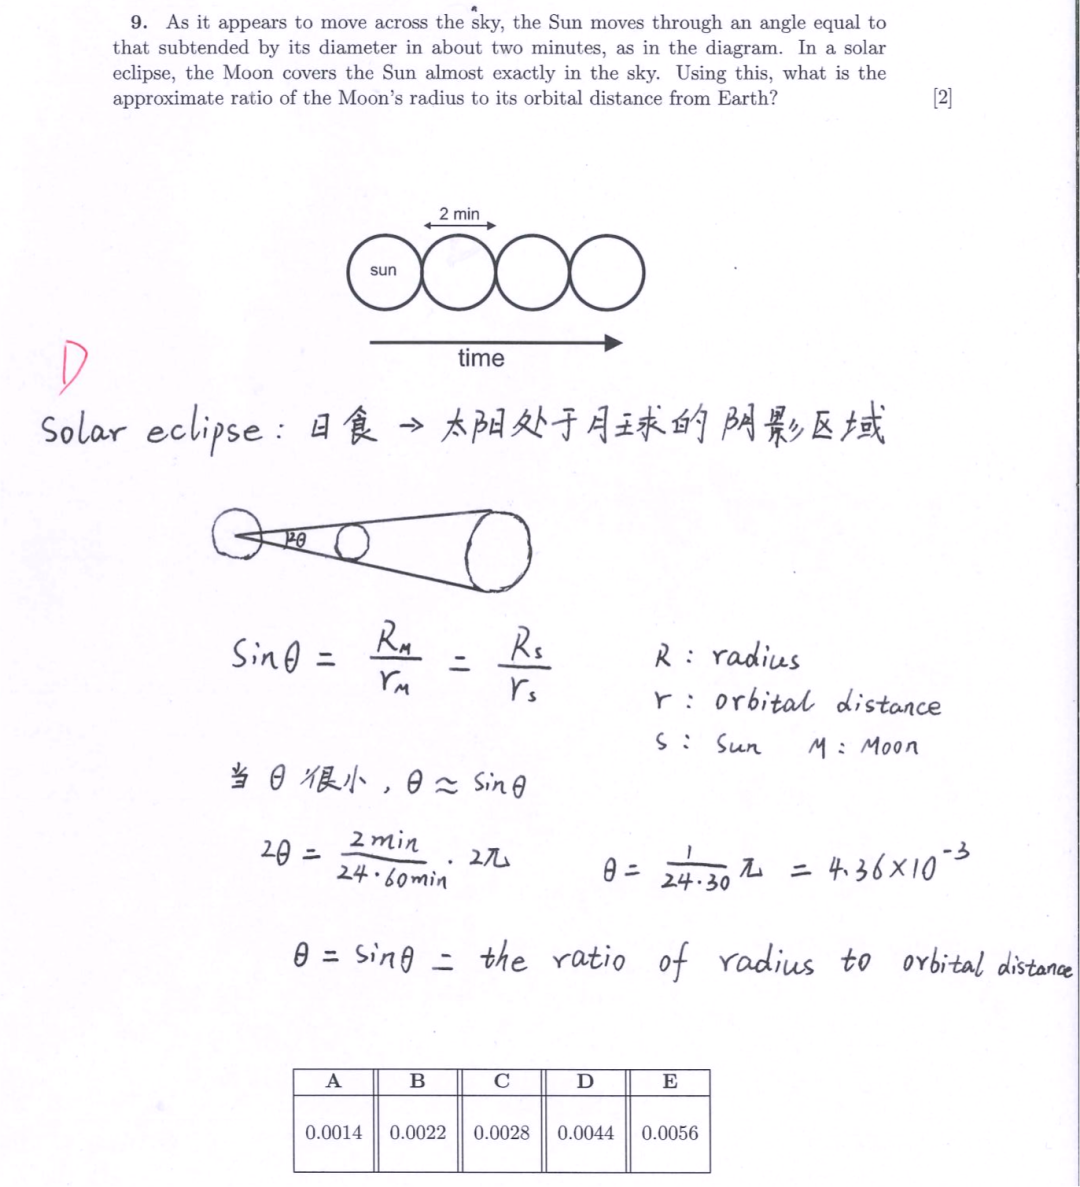 9. As it appears to move across the sky, the Sun moves through an angle equal to
that subtended by its diameter in about two minutes, as in the diagram. In a solar
eclipse, the Moon covers the Sun almost exactly in the sky. Using this, what is the
approximate ratio of the Moon's radius to its orbital distance from Earth? [2]
2 min
sun
time
D
Solar eclipse: 日食 → 太阳处于月球的阴影区域
2θ
Sinθ = R_M/r_M = R_s/r_s
R: radius
r: orbital distance
S: Sun M: Moon
当 θ 很小, θ ≈ Sinθ
2θ = 2min/24·60min · 2π θ = 1/24·30 π = 4.36×10^-3
θ = Sinθ = the ratio of radius to orbital distance
A B C D E
0.0014 0.0022 0.0028 0.0044 0.0056